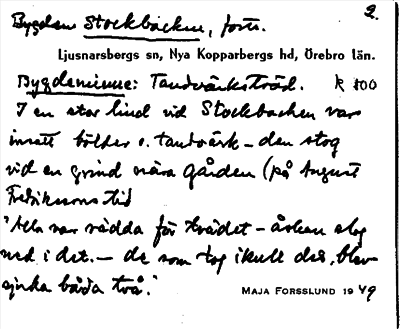 Bygden Stockbacken, forts. 2.
Ljusnarsbergs sn, Nya Kopparbergs hd, Örebro län.
Bygdeminne: Tandvärksträd. R 100
I en stor lind vid Stockbacken var
insatt bölder o. tandvärk - den stog
vid en grind nära gården (på August
Fredrikssons tid
"Alla var rädda för trädet - åskan slog
ned i det. - de som tog ikull det, blev
sjuka båda två."
MAJA FORSSLUND 1949